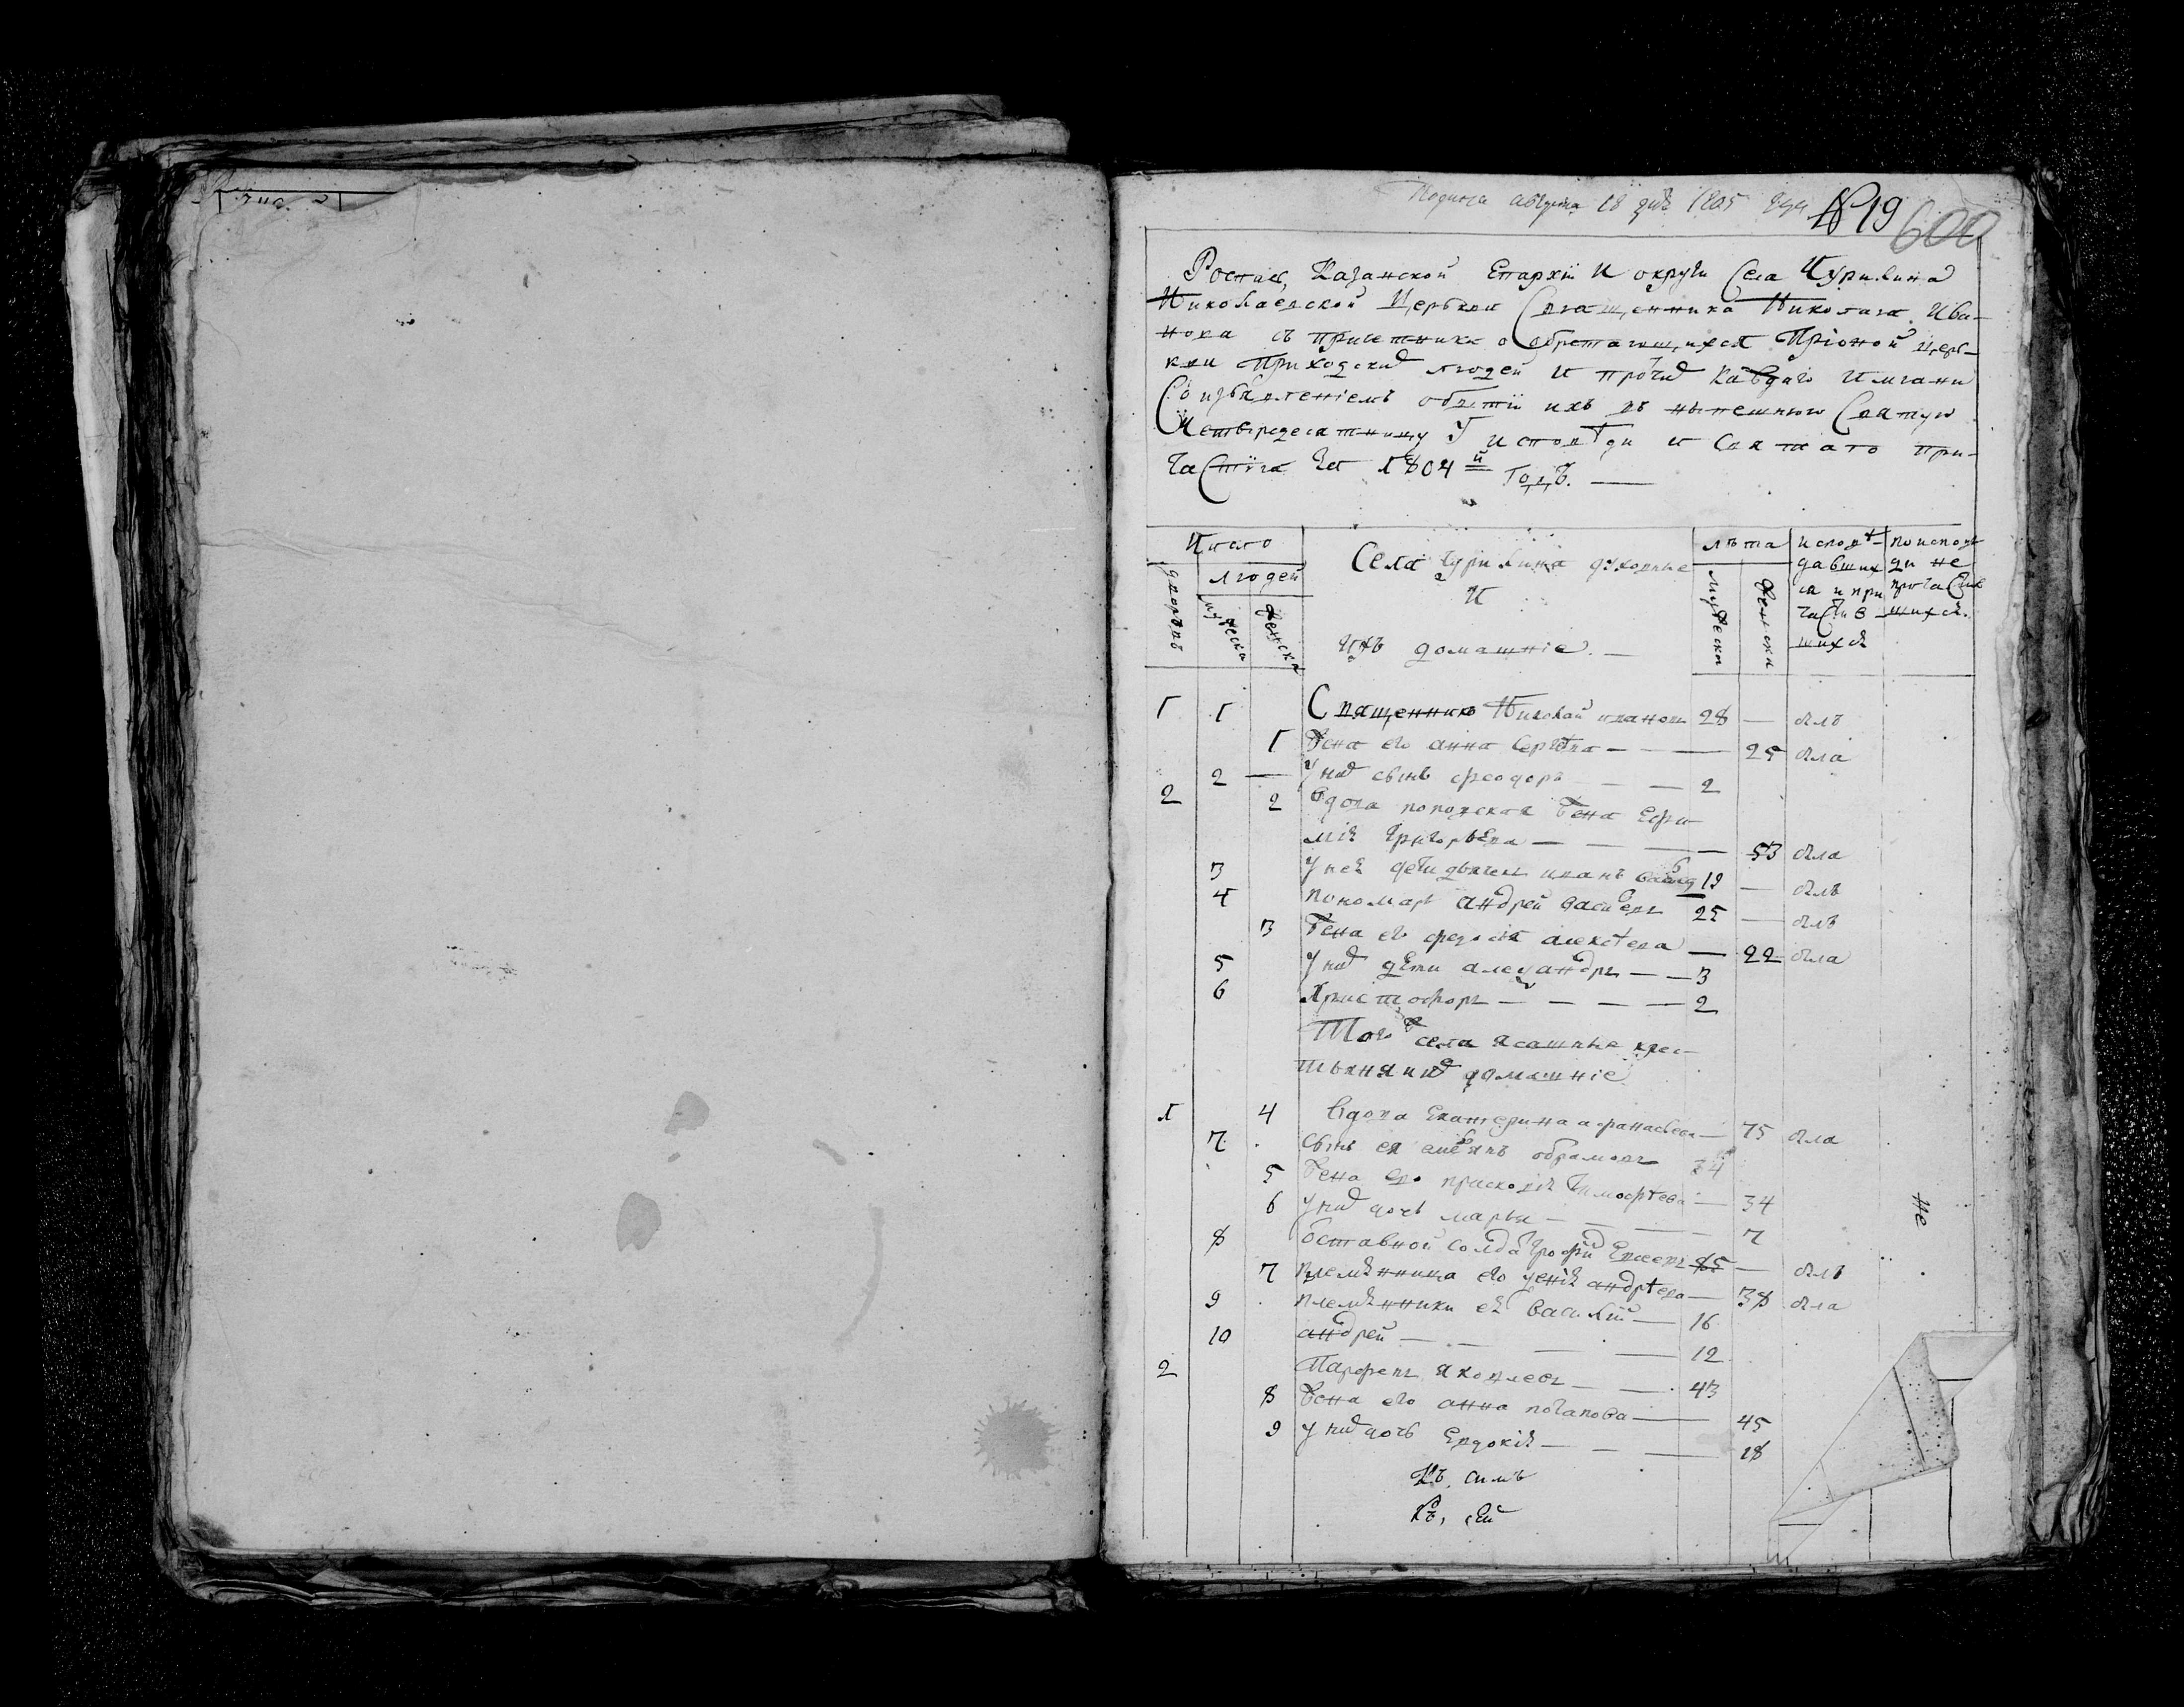 Подана августа 18 дня 1805 года №19
600
Роспись, Казанской Епархіи и округи Села Чурилина
Николаевской Церькви Священника Николая Ива-
нова съ причетники о обретающихся Пріоной церь-
кви Приходских людей и протчих каждаго имяни
Со изъявленіемъ объ бытіи ихъ въ нынешнюю Святую
Четвредесятницу У исповѣди и Святаго при-
частія За 1804й Годъ. —
Число
людей
дворовъ
мужеска
женска
Села Чурилина духовные
и
ихъ домашніе. —
лѣта
мужеска
женска
исповѣ-
давших
ся и при
частив
шихся
по исповѣ
ди не
причастив
шихся.
1 1 Священникъ Николай иванов 28 — былъ
1 Жена его анна Сергѣева — 25 была
2 — У них сынъ феодоръ — 2
2 2 Вдова поповская жена Ефи-
мія григорьева — 53 была
3 У нея дѣти дьячек иванъ 19 — былъ
4 пономарь андрей васильевъ 25 — былъ
3 Жена его федосія алексѣева — 22 была
5 У них дѣти александръ — 3
6 Христофоръ — 2
Того ж села ясашные крес-
тьяня и их домашніе
1 4 Вдова Екатерина афанасьева — 75 была
7 Сынъ ея емельянъ абрамовъ 34
5 Жена его прасковія тимофѣева — 34
6 У них дочь марья — 7
8 Отставной солдат 85 — былъ
7 племянница его андрѣева — 38 была
9 племянники ея Василий — 16
10 андрей — 12
2 Парфенъ яковлевъ — 43
8 Жена его анна потапова — 45
9 у них дочь Евдокія — 18
не
Къ симъ
Къ, сей